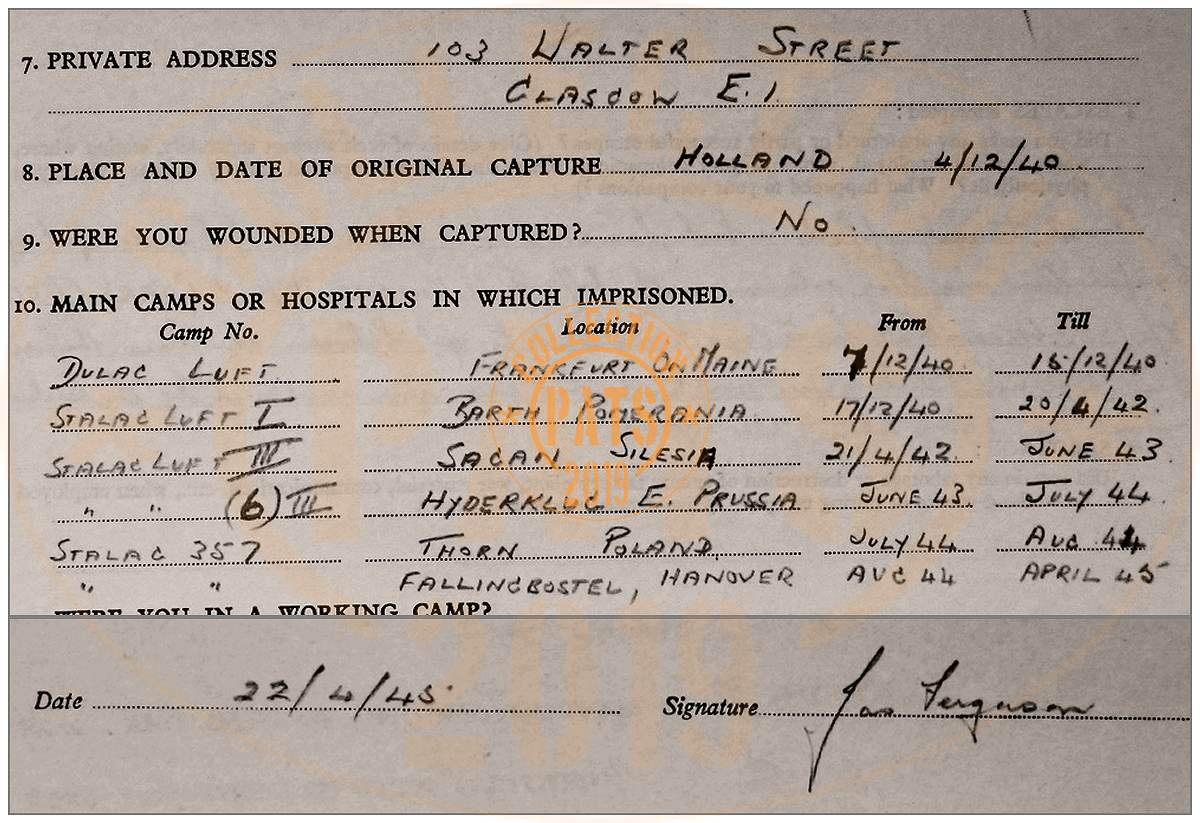 7. PRIVATE ADDRESS 103 WALTER STREET
GLASGOW E.1.
8. PLACE AND DATE OF ORIGINAL CAPTURE HOLLAND 4/12/40
9. WERE YOU WOUNDED WHEN CAPTURED? NO.
10. MAIN CAMPS OR HOSPITALS IN WHICH IMPRISONED.
Camp No. Location From Till
DULAG LUFT FRANKFURT ON MAINE 7/12/40 15/12/40
STALAG LUFT I BARTH POMERANIA 17/12/40 20/4/42.
STALAG LUFT III SAGAN SILESIA 21/4/42. JUNE 43
" " (6) III HYDERKLUG E. PRUSSIA JUNE 43 JULY 44
STALAG 357 THORN POLAND JULY 44 AUG 44
" " FALLINGBOSTEL, HANOVER AUG 44 APRIL 45
WERE YOU IN A WORKING CAMP?
Date 22/4/45. Signature Jas Ferguson
COLLECTION
PATS
2019